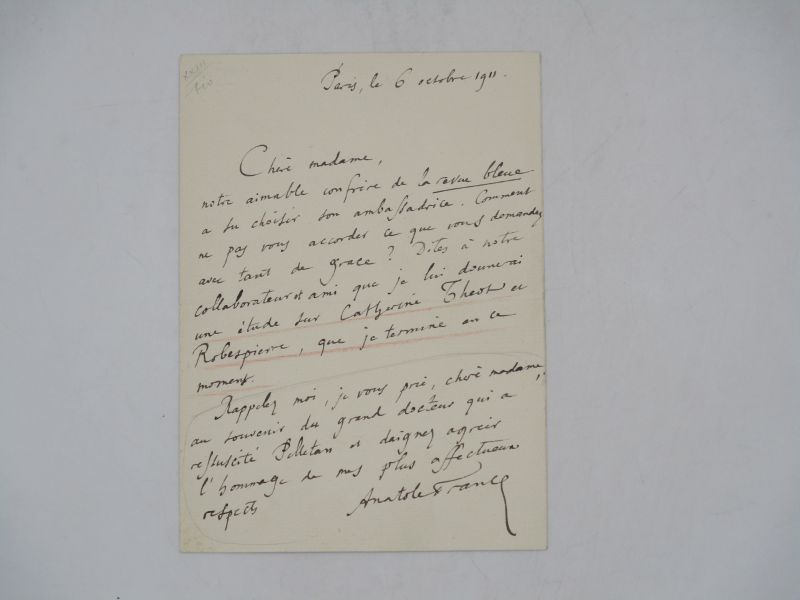 XXIII
Paris, le 6 octobre 1911.
Chère madame,
notre aimable confrère de la revue bleue
a su choisir son ambassadrice. Comment
ne pas vous accorder ce que vous demandez
avec tant de grace ? Dites à notre
collaborateur et ami que je lui donnerai
une étude sur Catherine Theot et
Robespierre, que je termine en ce
moment.
Rappelez moi, je vous prie, chère madame,
au souvenir du grand docteur qui a
ressuscité Pelletan et daignez agréer
l'hommage de mes plus affectueux
respects
Anatole France